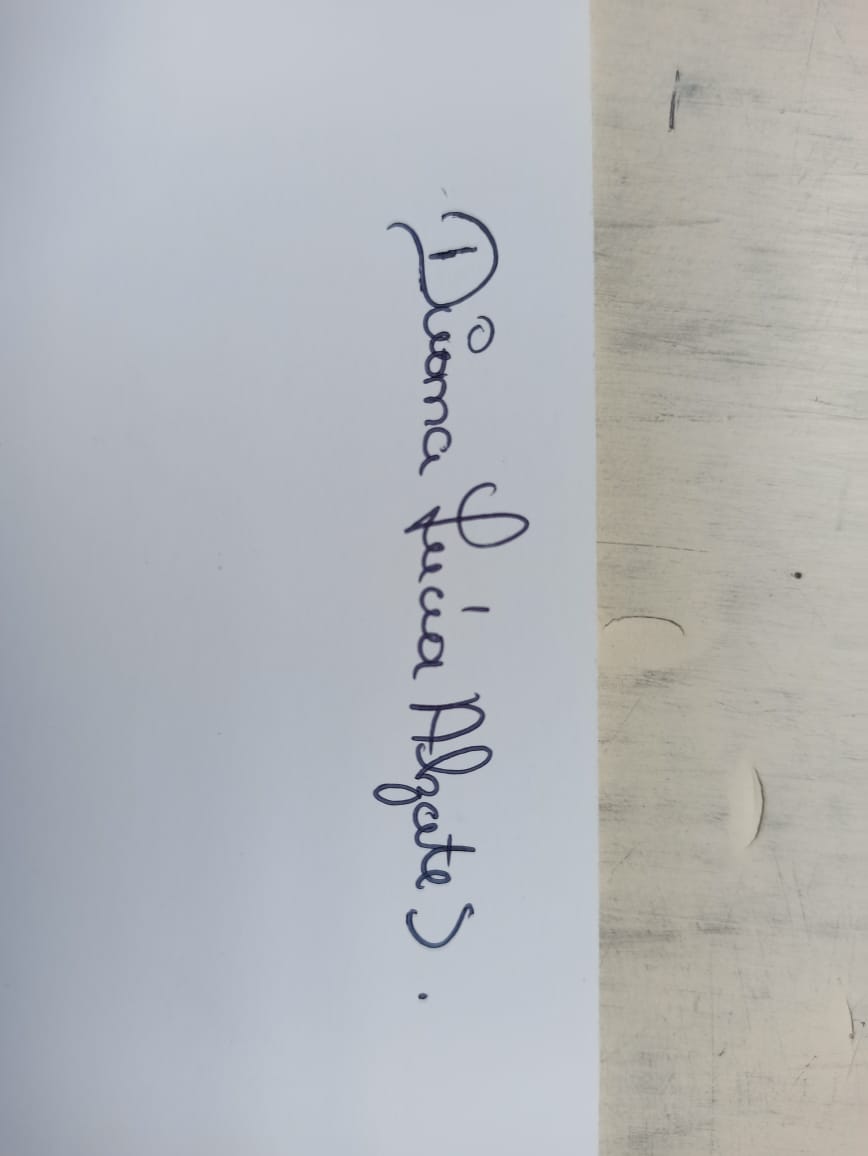 Diana Lucía Alzate S.